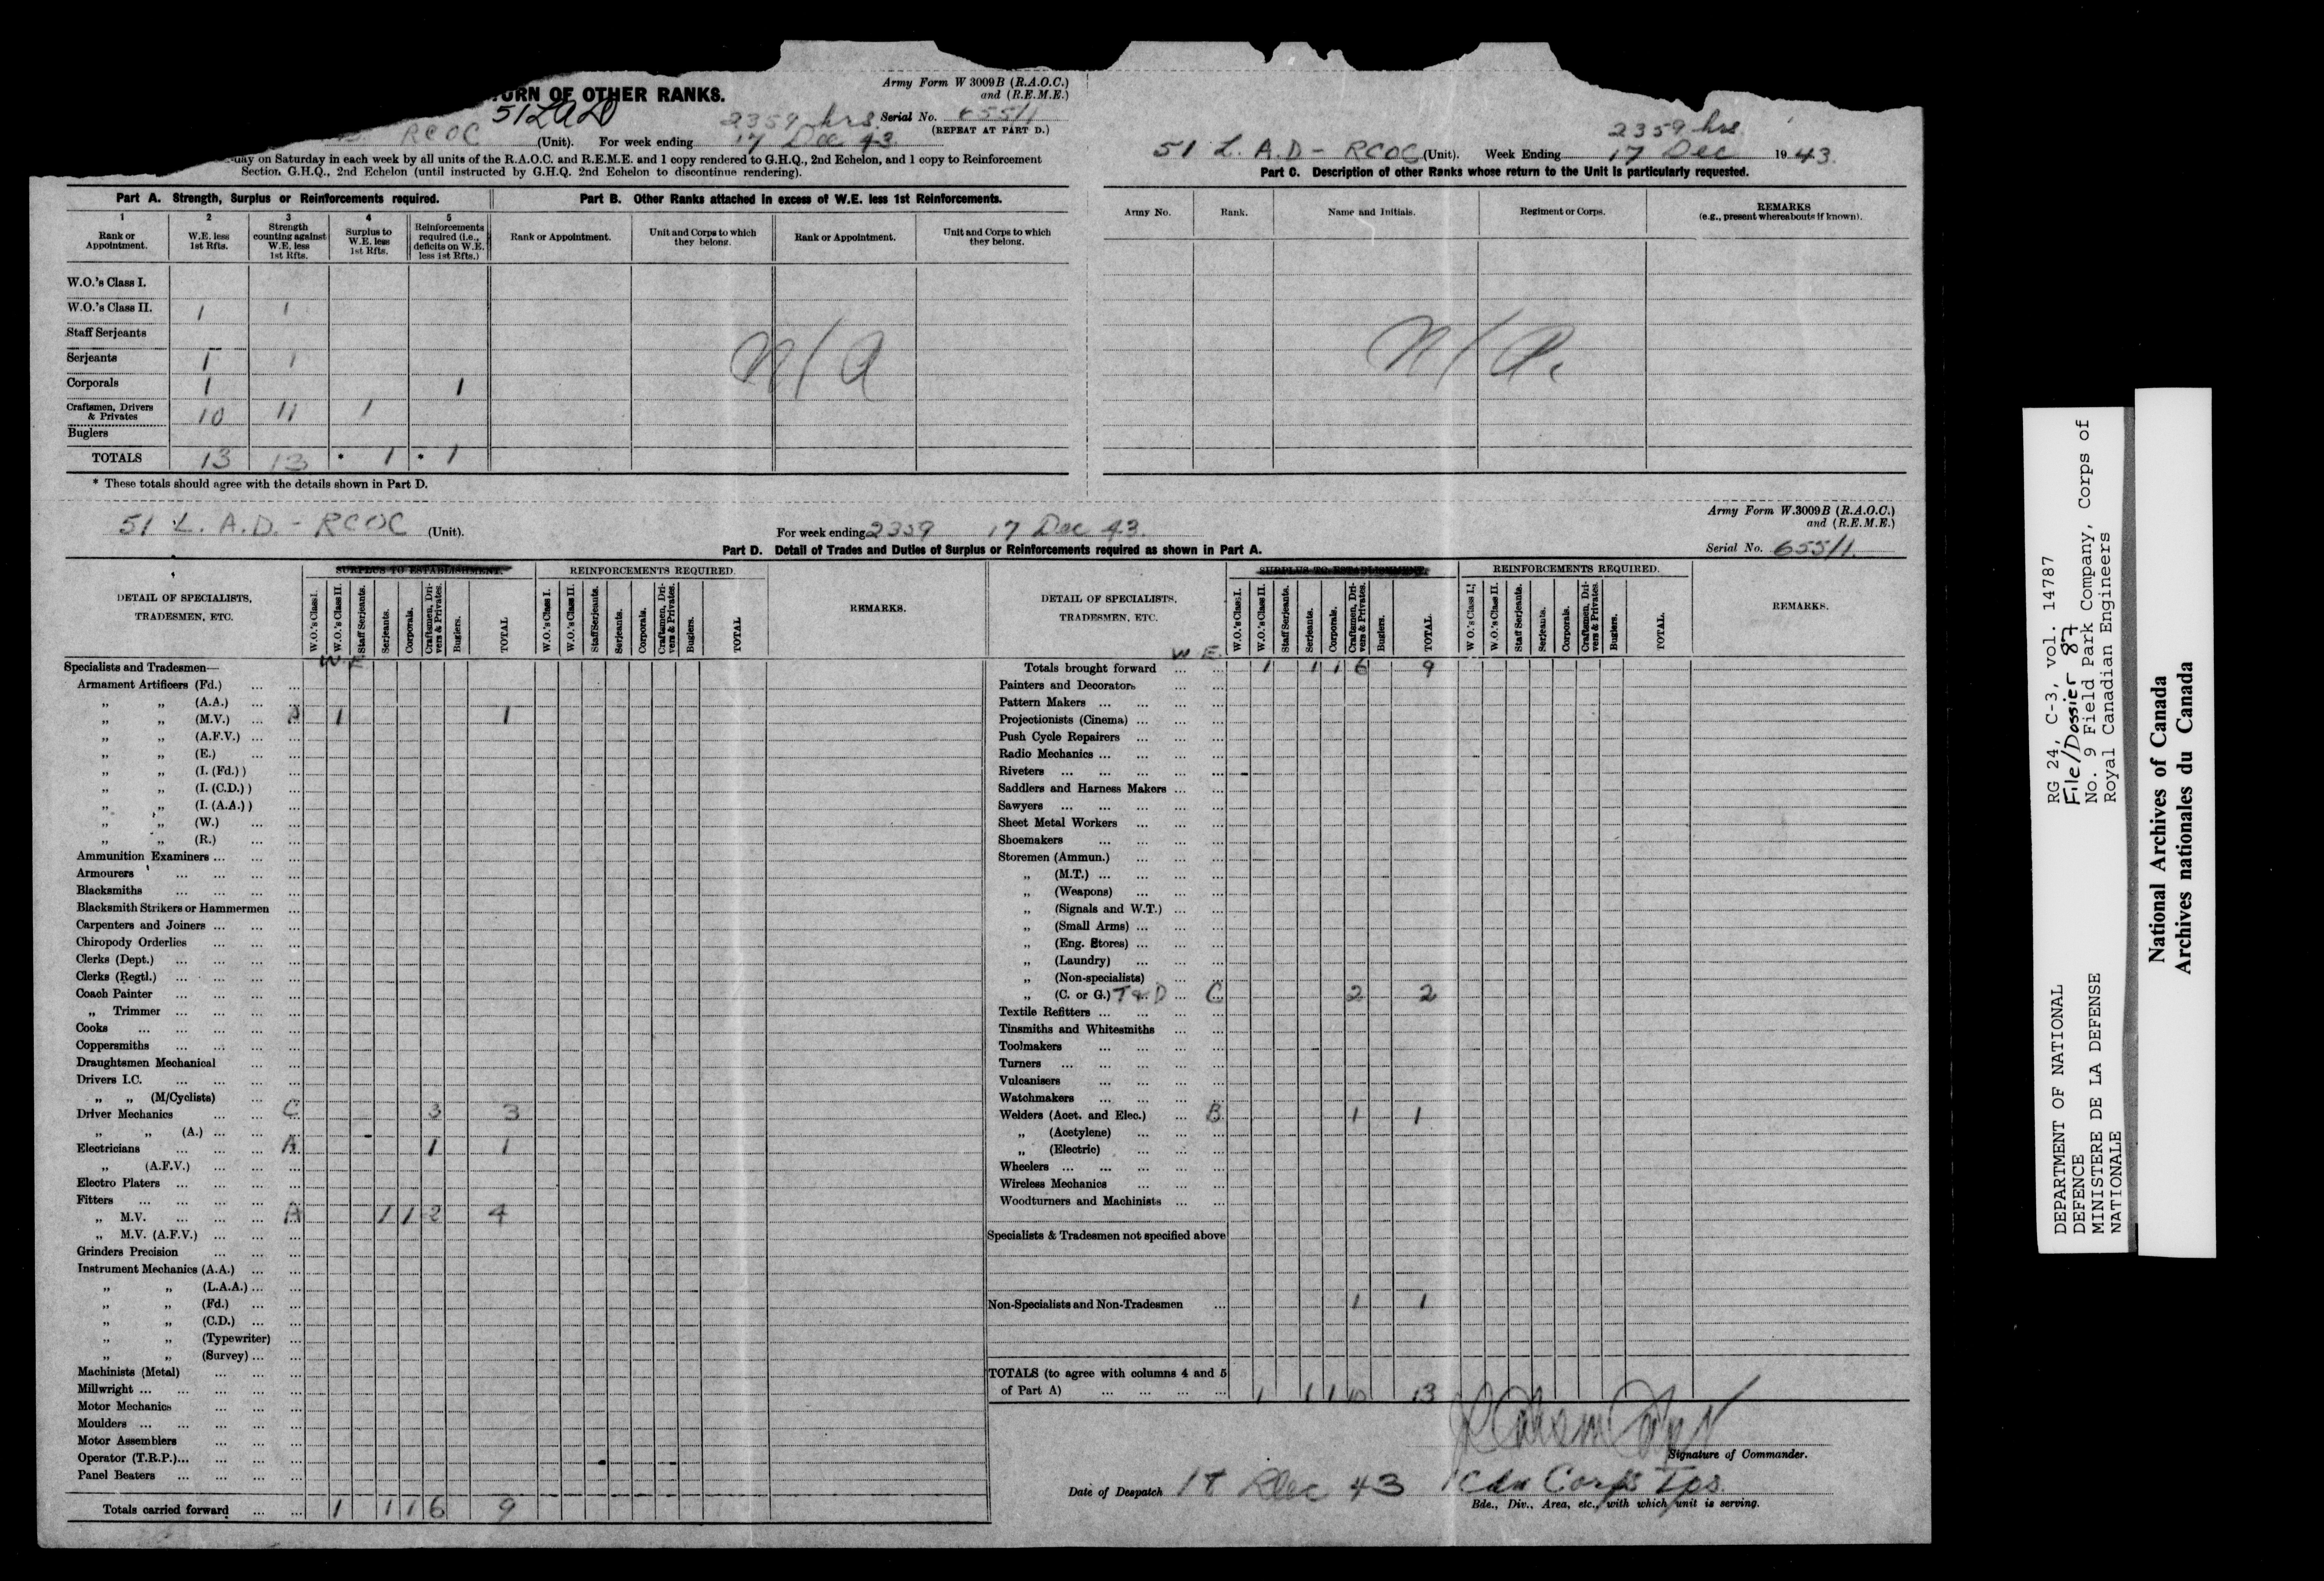 Army Form W 3009B (R.A.O.C.)
and (R.E.M.E.)
URN OF OTHER RANKS.
51 LAD
2359 hrs. Serial No. 655/1
(REPEAT AT PART D.)
RCOC (Unit). For week ending 17 Dec 43.
day on Saturday in each week by all units of the R.A.O.C. and R.E.M.E. and 1 copy rendered to G.H.Q., 2nd Echelon, and 1 copy to Reinforcement
Section G.H.Q., 2nd Echelon (until instructed by G.H.Q. 2nd Echelon to discontinue rendering).
Part A. Strength, Surplus or Reinforcements required.
1 2 3 4 5
Rank or Appointment. W.E. less 1st Rfts. Strength counting against W.E. less 1st Rfts. Surplus to W.E. less 1st Rfts. Reinforcements required (i.e., deficits on W.E. less 1st Rfts.)
W.O.'s Class I.
W.O.'s Class II. 1 1
Staff Serjeants
Serjeants 1 1
Corporals 1 1
Craftsmen, Drivers & Privates 10 11 1
Buglers
TOTALS 13 13 * 1 * 1
* These totals should agree with the details shown in Part D.
Part B. Other Ranks attached in excess of W.E. less 1st Reinforcements.
Rank or Appointment. Unit and Corps to which they belong. Rank or Appointment. Unit and Corps to which they belong.
N/A
2359 hrs
51 L. A. D - RCOC (Unit). Week Ending 17 Dec 1943.
Part C. Description of other Ranks whose return to the Unit is particularly requested.
Army No. Rank. Name and Initials. Regiment or Corps. REMARKS (e.g., present whereabouts if known).
N/A.
51 L. A.D. - RCOC (Unit). For week ending 2359 17 Dec 43.
Army Form W.3009B (R.A.O.C.)
and (R.E.M.E.)
Serial No. 655/1.
Part D. Detail of Trades and Duties of Surplus or Reinforcements required as shown in Part A.
DETAIL OF SPECIALISTS, TRADESMEN, ETC.
SURPLUS TO ESTABLISHMENT. REINFORCEMENTS REQUIRED.
W.O.'s Class I. W.O.'s Class II. Staff Serjeants. Serjeants. Corporals. Craftsmen, Drivers & Privates. Buglers. TOTAL
W.O.'s Class I. W.O.'s Class II. Staff Serjeants. Serjeants. Corporals. Craftsmen, Drivers & Privates. Buglers. TOTAL
REMARKS.
W E
Specialists and Tradesmen—
Armament Artificers (Fd.) ... ...
„ „ (A.A.) ... ...
„ „ (M.V.) ... A 1 1
„ „ (A.F.V.) ... ...
„ „ (E.) ... ...
„ „ (I. (Fd.) ) ...
„ „ (I. (C.D.) ) ...
„ „ (I. (A.A.) ) ...
„ „ (W.) ... ...
„ „ (R.) ... ...
Ammunition Examiners ... ... ...
Armourers ... ... ... ...
Blacksmiths ... ... ... ...
Blacksmith Strikers or Hammermen ...
Carpenters and Joiners ... ... ...
Chiropody Orderlies ... ... ...
Clerks (Dept.) ... ... ... ...
Clerks (Regtl.) ... ... ... ...
Coach Painter ... ... ... ...
„ Trimmer ... ... ... ...
Cooks ... ... ... ... ...
Coppersmiths ... ... ... ...
Draughtsmen Mechanical ... ...
Drivers I.C. ... ... ... ...
„ „ (M/Cyclists) ...
Driver Mechanics ... ... C 3 3
„ „ (A.) ... ... ...
Electricians ... ... ... A 1 1
„ (A.F.V.) ... ... ...
Electro Platers ... ... ... ...
Fitters ... ... ... ... ...
„ M.V. ... ... ... A 1 1 2 4
„ M.V. (A.F.V.) ... ... ...
Grinders Precision ... ... ...
Instrument Mechanics (A.A.) ... ...
„ „ (L.A.A.) ... ...
„ „ (Fd.) ... ...
„ „ (C.D.) ... ...
„ „ (Typewriter) ...
„ „ (Survey) ... ...
Machinists (Metal) ... ... ...
Millwright ... ... ... ... ...
Motor Mechanics ... ... ...
Moulders ... ... ... ... ...
Motor Assemblers ... ... ...
Operator (T.R.P.)... ... ... ...
Panel Beaters ... ... ... ...
Totals carried forward ... ... 1 1 1 6 9
DETAIL OF SPECIALISTS, TRADESMEN, ETC.
SURPLUS TO ESTABLISHMENT. REINFORCEMENTS REQUIRED.
W.O.'s Class I. W.O.'s Class II. Staff Serjeants. Serjeants. Corporals. Craftsmen, Drivers & Privates. Buglers. TOTAL.
W O.'s Class I. W.O.'s Class II. Staff Serjeants. Serjeants. Corporals. Craftsmen, Drivers & Privates. Buglers. TOTAL.
REMARKS.
W E.
Totals brought forward ... ... 1 1 1 6 9
Painters and Decorators ... ...
Pattern Makers ... ... ... ...
Projectionists (Cinema) ... ... ...
Push Cycle Repairers ... ... ...
Radio Mechanics ... ... ... ...
Riveters ... ... ... ... ...
Saddlers and Harness Makers ... ...
Sawyers ... ... ... ... ...
Sheet Metal Workers ... ... ...
Shoemakers ... ... ... ...
Storemen (Ammun.) ... ... ...
„ (M.T.) ... ... ... ...
„ (Weapons) ... ... ...
„ (Signals and W.T.) ... ...
„ (Small Arms) ... ... ...
„ (Eng. Stores) ... ... ...
„ (Laundry) ... ... ...
„ (Non-specialists) ... ...
„ (C. or G.) T & D ... C 2 2
Textile Refitters ... ... ... ...
Tinsmiths and Whitesmiths ... ...
Toolmakers ... ... ... ...
Turners ... ... ... ... ...
Vulcanisers ... ... ... ...
Watchmakers ... ... ... ...
Welders (Acet. and Elec.) ... B 1 1
„ (Acetylene) ... ... ...
„ (Electric) ... ... ...
Wheelers ... ... ... ... ...
Wireless Mechanics ... ... ...
Woodturners and Machinists ... ...
Specialists & Tradesmen not specified above
Non-Specialists and Non-Tradesmen ... 1 1
TOTALS (to agree with columns 4 and 5
of Part A) ... ... ... ... 1 1 1 10 13
Signature of Commander.
Date of Despatch 18 Dec 43 1 Cdn Corps Tps.
Bde., Div., Area, etc., with which unit is serving.
DEPARTMENT OF NATIONAL
DEFENCE
MINISTERE DE LA DEFENSE
NATIONALE
RG 24, C-3, vol. 14787
File/Dossier 87
No. 9 Field Park Company, Corps of
Royal Canadian Engineers
National Archives of Canada
Archives nationales du Canada